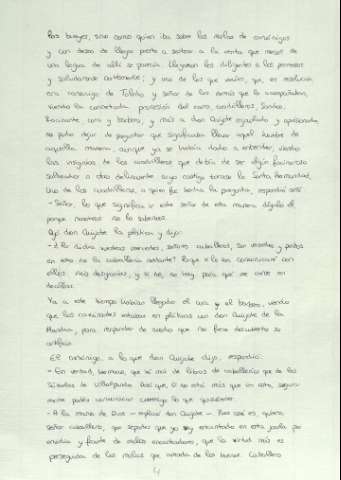 los bueyes, sino como quien iba sobre las mulas de canónigos
y con deseo de llegar presto a sestear a la venta que menos de
una legua de allí se parecía. Llegaron los diligentes a los perezosos
y saludáronse cortésmente; y uno de los que venían, que, en resolución
era canónigo de Toledo y señor de los demás que le acompañaban,
viendo la concertada procesión del carro, cuadrilleros, Sancho,
Rocinante, cura y barbero, y más a don Quijote enjaulado y aprisionado,
no pudo dejar de preguntar qué significaba llevar aquel hombre de
aquella manera, aunque ya se había dado a entender, viendo
las insignias de los cuadrilleros que debía de ser algún facinoroso
salteador o otro delincuente cuyo castigo tocase a la Santa Hermandad.
Uno de los cuadrilleros, a quien fue hecha la pregunta, respondió así:
- Señor, lo que significa ir este señor de esta manera dígalo él
porque nosotros no lo sabemos.
Oyó don Quijote la plática y dijo:
- ¿Por dicha vuestras mercedes, señores caballeros, son versados y peritos
en esto de la caballería andante? Porque si lo son comunicaré con
ellos mis desgracias, y si no, no hay para qué me canse en
decillas.
Ya a este tiempo habían llegado el cura y el barbero, viendo
que los caminantes estaban en pláticas con don Quijote de la
Mancha, para responder de modo que no fuese descubierto su
artificio.
El canónigo, a lo que don Quijote dijo, respondió:
- En verdad, hermano, que sé más de libros de caballerías que de las
Súmulas de Villalpando. Así que, si no está más que en esto, segura-
mente podéis comunicar conmigo lo que quisiéredes.
- A la mano de Dios - replicó don Quijote -. Pues así es, quiero,
señor caballero, que sepades que yo voy encantado en esta jaula por
envidia y fraude de malos encantadores, que la virtud más es
perseguida de los malos que amada de los buenos. Caballero
4